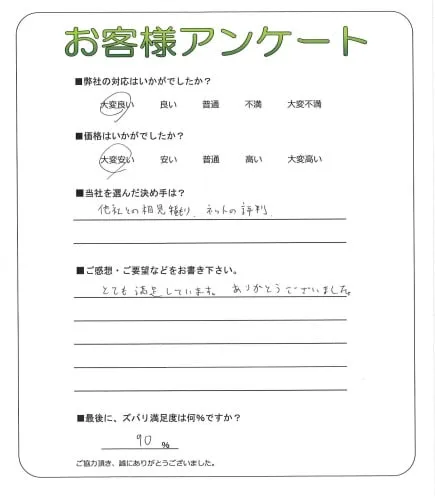 お客様アンケート
■弊社の対応はいかがでしたか？
大変良い 良い 普通 不満 大変不満
■価格はいかがでしたか？
大変安い 安い 普通 高い 大変高い
■当社を選んだ決め手は？
他社との相見積もり、ネットの評判
■ご感想・ご要望などをお書き下さい。
とても満足しています。ありがとうございました。
■最後に、ズバリ満足度は何%ですか？
90 %
ご協力頂き、誠にありがとうございました。